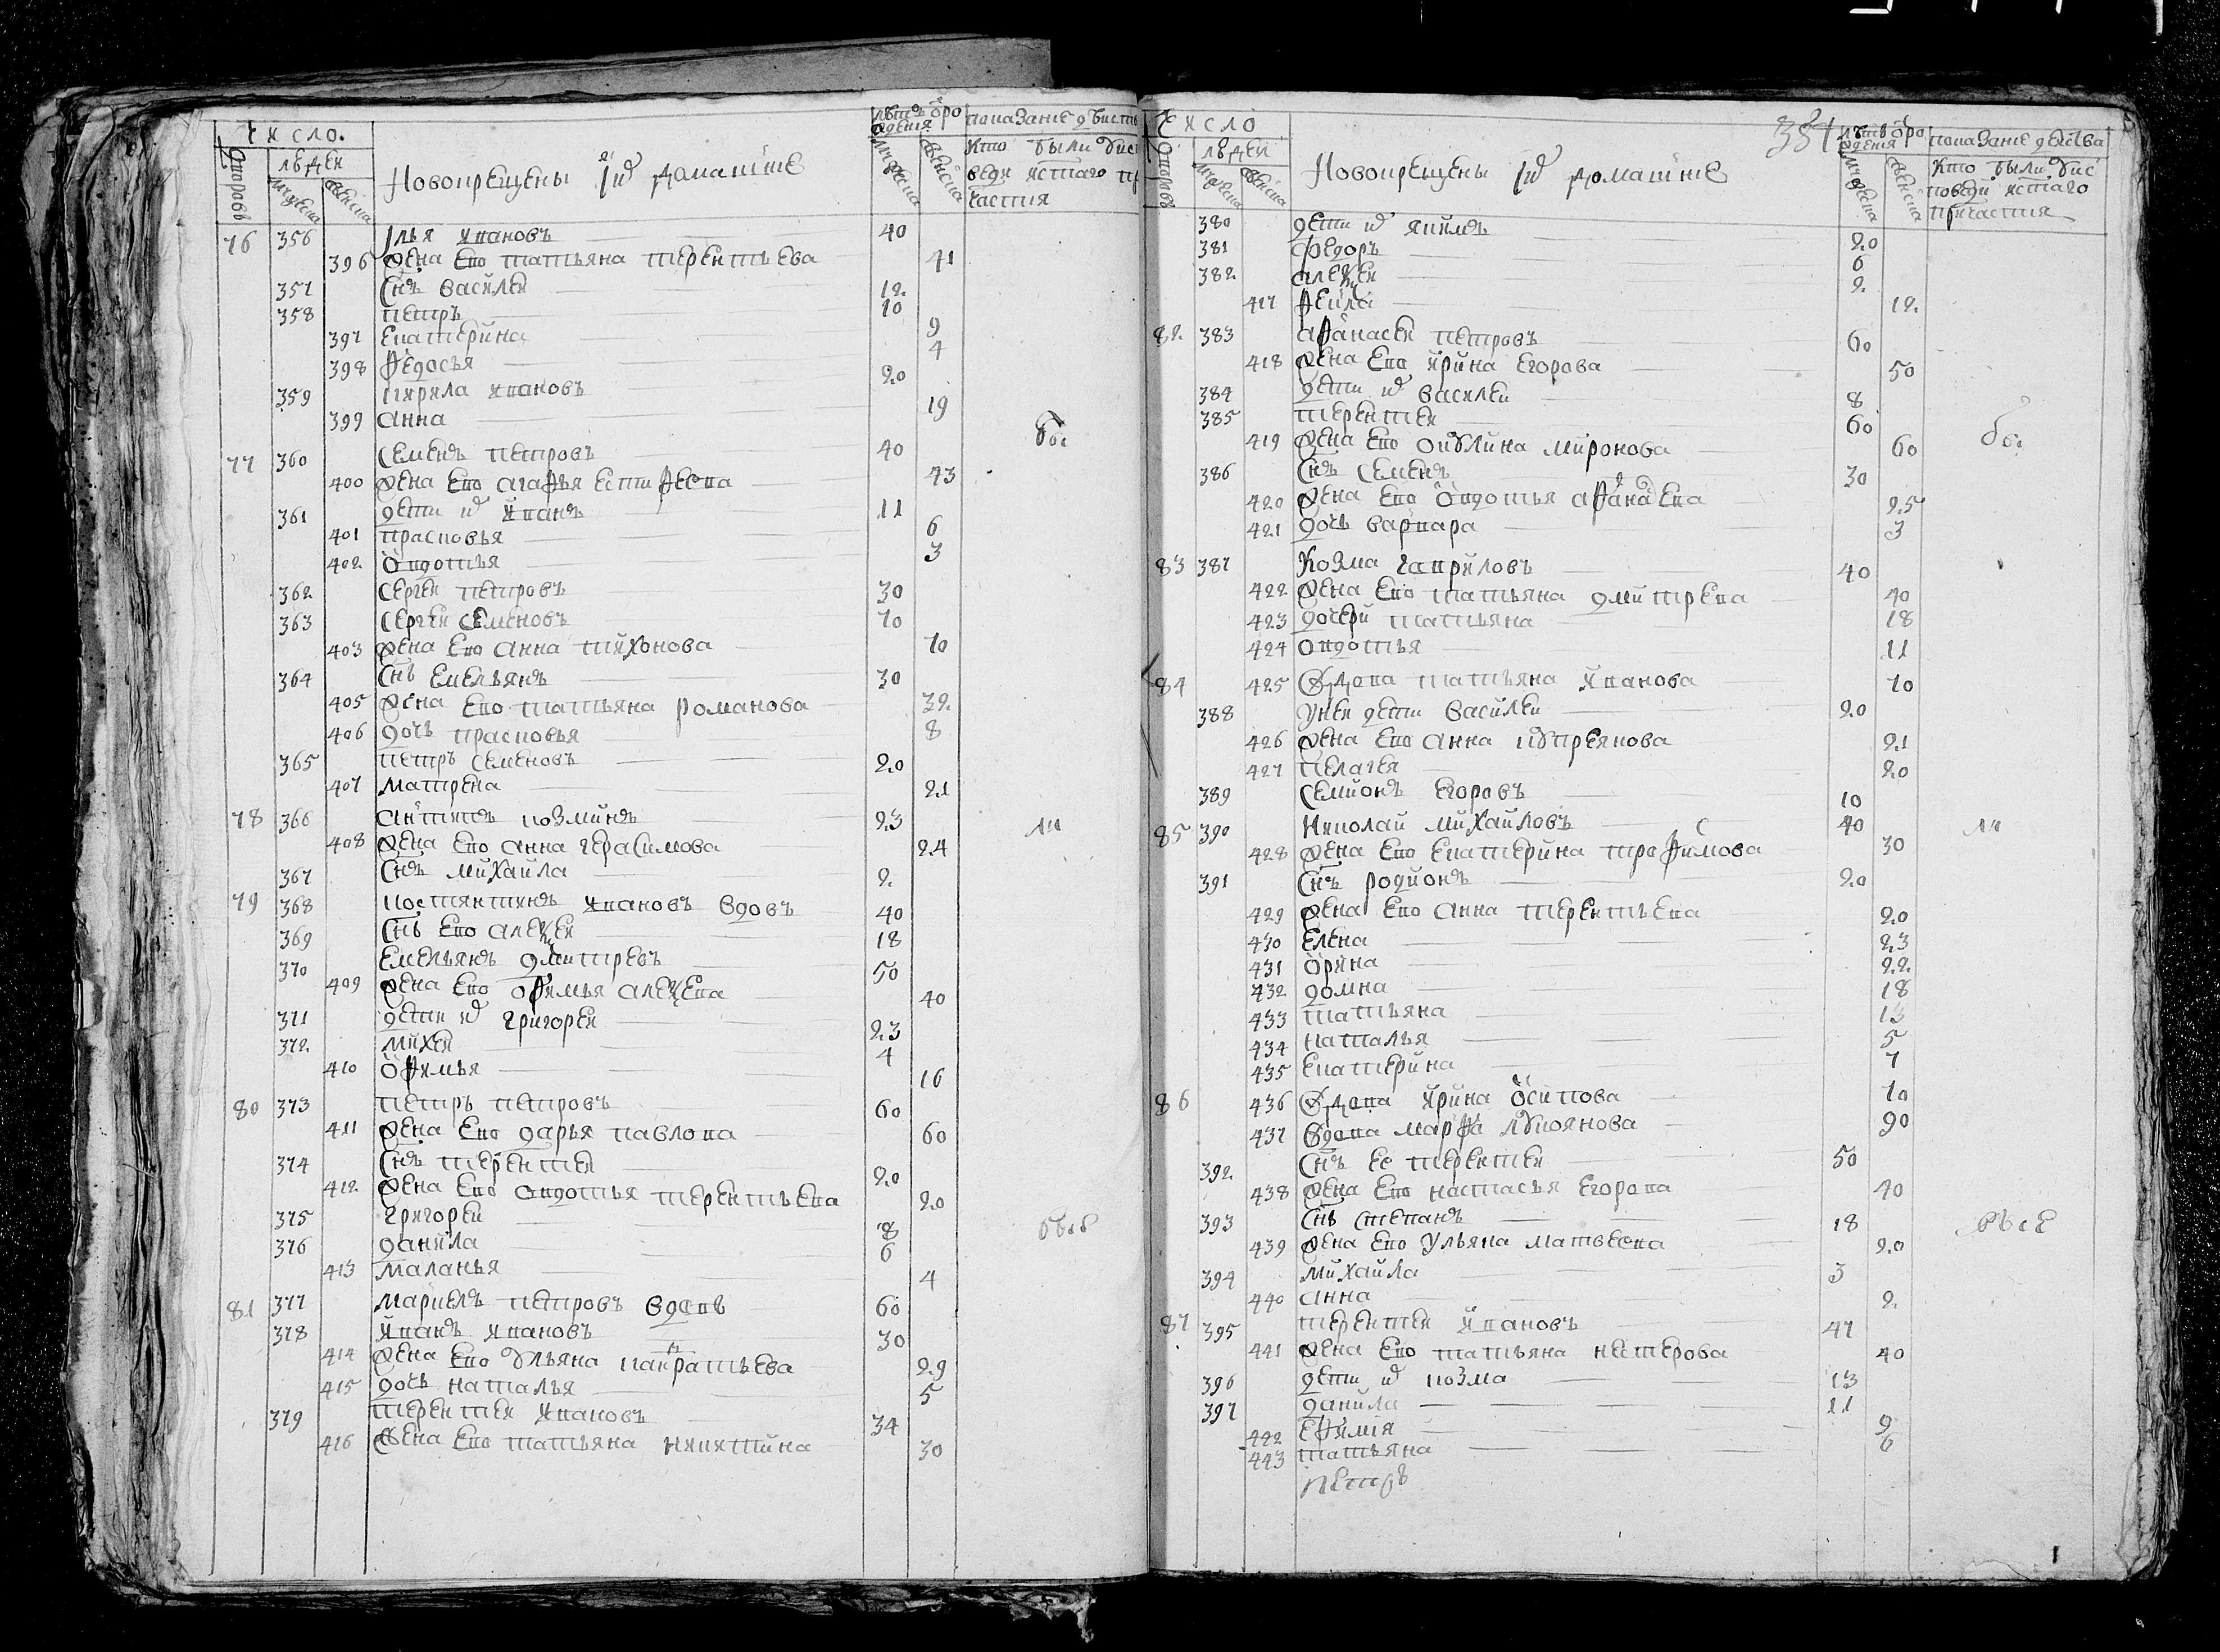 Число.
людей
Дворовъ
мужеска
женска
Новокрещены Iих домашние
лѣтъ ѿ рождения
мужеска
женска
показание действ
Кто были у ис
веди и стаго пр
частия
76 356 Iлья Иванов 40
396 жена ево татьяна терентьева 41
357 Снъ василеи 12
358 петръ 10
397 Екатерина 9
398 Ѳедосья 4
359 Кирила Иванов 20
399 анна 19
77 360 Семенъ петровъ 40
400 жена ево агаѳья естиѳеева 43
361 дети их Иванъ 11
401 прасковья 6
402 Овдотья 3
362 Сергеи петровъ 30
363 Сергеи Семеновъ 70
403 жена ево анна тихонова 70
364 Снъ Емельянъ 30
405 жена ево татьяна романова 32
406 дочь прасковья 8
365 петръ Семеновъ 20
407 матрена 21
78 366 антипъ козминъ 23
408 жена ево анна герасимова 24
367 Снъ михаила 2
79 368 костянтинъ Ивановъ вдовъ 40
369 Снъ ево алеѯеи 18
370 Емельянъ дмитревъ 50
409 жена ево оѳимья алеѯева 40
371 дети их григореи 23
372 михеи 4
410 оѳимья 16
80 373 петръ петровъ 60
411 жена ево дарья павлова 60
374 Снъ терентеи 20
412 жена ево авдотья терентьева 20
375 григореи 8
376 данила 6
413 маланья 4
81 377 маркелъ петровъ вдовъ 60
378 Иванъ Ивановъ 30
414 жена ево ульяна панкратьева 29
415 дочь наталья 5
379 терентеи Ивановъ 34
416 жена ево татьяна никитина 30
бы
ли
у все
Число
людеи
Дворовъ
мужеска
женска
Новокрещены Iих домашние
384
лѣтъ ѿ рождения
мужеска
женска
показание действа
Кто были у ис
поведи и стаго
причастия
380 дети их якимъ 20
381 ѳедоръ 6
382 алеѯеи 2
417 Ѳекла 12
82 383 аѳанасеи петровъ 60
418 жена ево ирина Егорова 50
384 дети их василеи 8
385 терентеи 60
419 жена ево акулина миронова 60
386 Снъ семенъ 30
420 жена ево Овдотья аѳанасева 25
421 дочь варвара 3
83 387 Козма гавриловъ 40
422 жена ево татьяна дмитрева 40
423 дочери татьяна 18
424 овдотья 11
84 425 вдова татьяна Иванова 70
388 унеи дети василеи 20
426 жена ево анна купреянова 21
427 пелагея 20
389 Семионъ Егоровъ 10
85 390 николаи михаиловъ 40
428 жена ево Екатерина троѳимова 30
391 Снъ родионъ 20
429 жена ево анна терентьева 20
430 Елена 23
431 Орина 22
432 домна 18
433 татьяна 13
434 наталья 5
435 Екатерина 7
86 436 вдова ирина Осипова 70
437 вдова марѳа лукоянова 90
392 Снъ ее терентеи 50
438 жена ево настасья Егорова 40
393 Снъ степанъ 18
439 жена ево ульяна матвеева 20
394 михаила 3
440 анна 2
87 395 терентеи Ивановъ 47
441 жена ево татьяна нестерова 40
396 дети их козма 13
397 данила 11
442 Еѳимия 9
443 татьяна 6
петръ
бы
ли
1